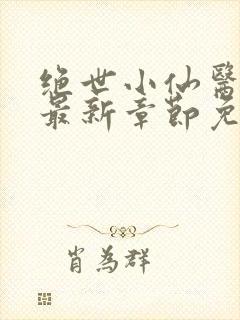 绝世小仙醫
最新章節免
肖為群